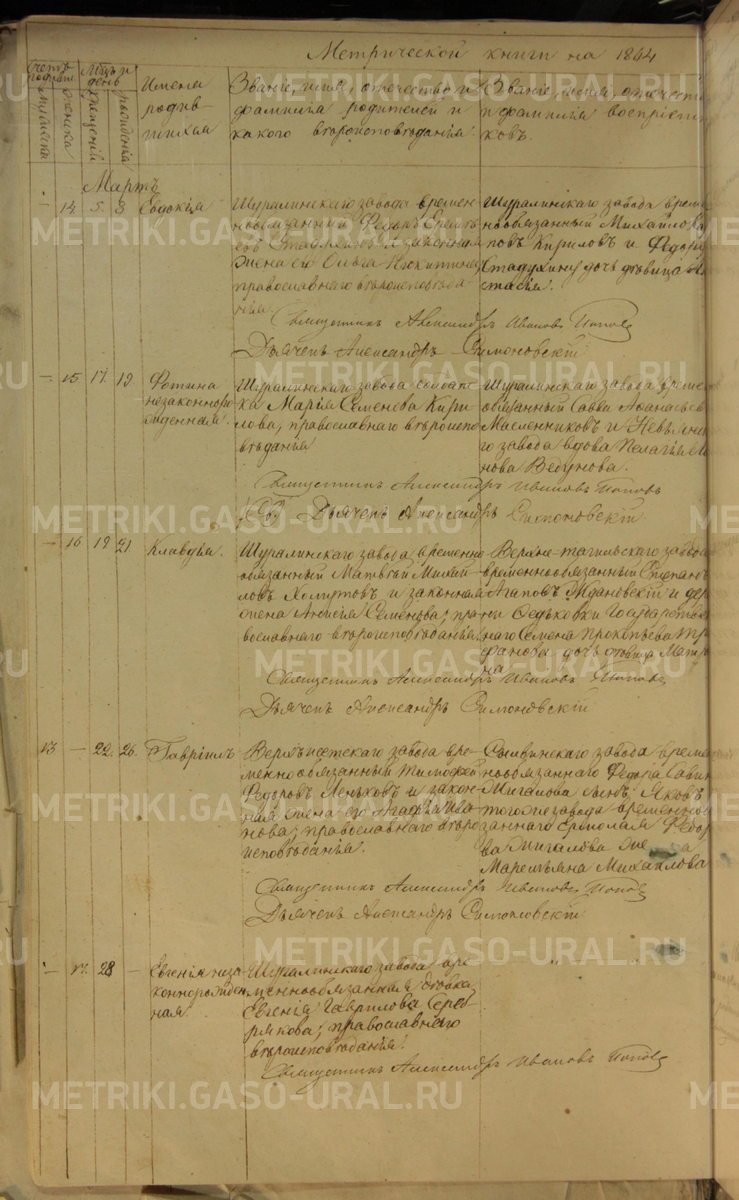 Метрической книги на 1864
Счетъ родивш.
Мѣсяцъ и день
мужеска
женска
крещенія
рожденія
Имена
родив-
шихся
Званіе, имя, отечество и
фамилія родителей и
какого вѣроисповѣданія
Званіе, имя, отечест
и фамилія воспріем
ковъ.
Мартъ
— 14. 5. 3. Евдокія
Шуралинскаго завода времен-
нообязанный Федоръ
и законная
жена его Ольга Никитина,
православнаго вѣроисповѣда-
нія
Шуралинскаго завода време
нообязанный Михайло
повъ Кириловъ и Федор
Стадухину дочь дѣвица
стасія.
Священникъ Александръ Ивановъ Поповъ
Дьячекъ Александръ Симоновскій
— 15 17. 13 Фотина
незаконноро
жденная.
Шуралинскаго завода солдат-
ка Марія Семенова Кири-
лова, православнаго вѣроиспо
вѣданія
Шуралинскаго завода време
обязанный Савва Афанасьев
Масленниковъ и Невьянск
го завода вдова Пелагія
нова Ведунова.
Священникъ Александръ Ивановъ Поповъ
Дьячекъ Александръ Симоновскій
— 16 19 21 Клавдія.
Шуралинскаго завода временно
обязанный Матвѣй Михай-
ловъ Хомутовъ и законная
жена Анисія Семенова; пра-
вославнаго вѣроисповѣданія
Верхне-тагильскаго завода
временнообязанный Степанъ
Агаповъ Ждановскій и дер
ни Федьковки Государств
наго Семена Прокопьева Тр
фанова дочь дѣвица Матр
на
Священникъ Александръ Ивановъ Поповъ
Дьячекъ Александръ Симоновскій
13 — 22. 26. Гавріилъ
Верхъисетскаго завода вре-
меннообязанный Тимофей
Федоровъ Пеньковъ и закон-
ная жена его Агафья Ива
нова; православнаго вѣро
исповѣданія.
Сылвинскаго завода време
нообязаннаго Федота Савин
Мигалова сынъ Яковъ
тогоже завода временноо
заннаго Ермолая Федор
ва Мигалова же а
Маремьяна Михайлова
Священникъ Александръ Ивановъ Поповъ
Дьячекъ Александръ Симоновскій
— 17. 28 — Евгенія неза
коннорожден
ная.
Шуралинскаго завода вре-
меннообязанная дѣвка
Евгенія Гаврилова Сереб-
рякова; православнаго
вѣроисповѣданія.
Священникъ Александръ Ивановъ Поповъ
METRIKI.GASO-URAL.RU